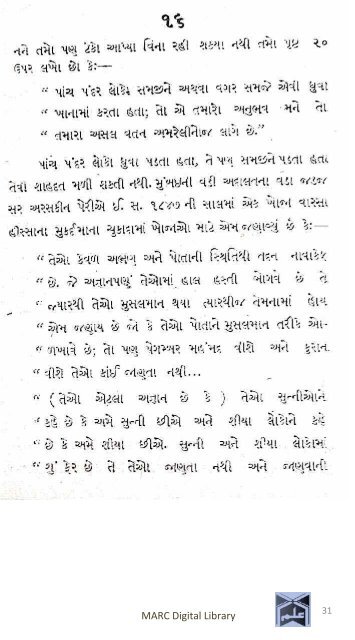 ૧૬
નને તમો પણ ટંકો આખ્યા વિના રહી શક્યા નથી તમો પૃષ્ટ ૨૦
ઉપર લખો છો કેઃ—
“ પાંચ પંદર લોકો સમજીને અથવા વગર સમજે એવી ધુવા
“ ખાનામાં કરતા હતા; તો એ તમારો અનુભવ મને તો
“ તમારા અસલ વતન અમરેલીનોજ લાગે છે.”
પાંચ પંદર લોકો ધુવા પડતા હતા, તે પણ સમજીને પડતા હતા
તેવી શાહદત મળી શકતી નથી. મુંબઇની વડી અદાલતના વડા જડજ
સર અરસકીન પેરીએ ઈ સ. ૧૮૪૭ ની સાલમાં એક ખોજા વારસા
હીસ્સાના મુકદૃમાના ચુકાદામાં ખોજાઓ માટે એમ જણાવ્યું છે કેઃ—
“ તેઓ કેવળ અભણ અને પોતાની સ્થિતિથી તદ્દન નાવાકેફ
“ છે. જે અજ્ઞાનપણું તેઓમાં હાલ હસ્તી ભોગવે છે તે
“ જ્યારથી તેઓ મુસલમાન થયા ત્યારથીજ તેમનામાં હોય
“ એમ જણાય છે જો કે તેઓ પોતાને મુસલમાન તરીકે ઓ-
“ ળખાવે છે; તો પણ પેગમ્બર મહંમદ વીશે અને કુરાન
“ વીશે તેઓ કાંઈ જાણતા નથી...
“ ( તેઓ એટલા અજ્ઞાન છે કે ) તેઓ સુન્નીઓને
“ કહે છે કે અમે સુન્ની છીએ અને શીયા લોકોને કહે
“ છે કે અમે શીયા છીએ. સુન્ની અને શીયા લોકોમાં
“ શું ફેર છે તે તેઓ જાણતા નથી અને જાણવાની
MARC Digital Library
31